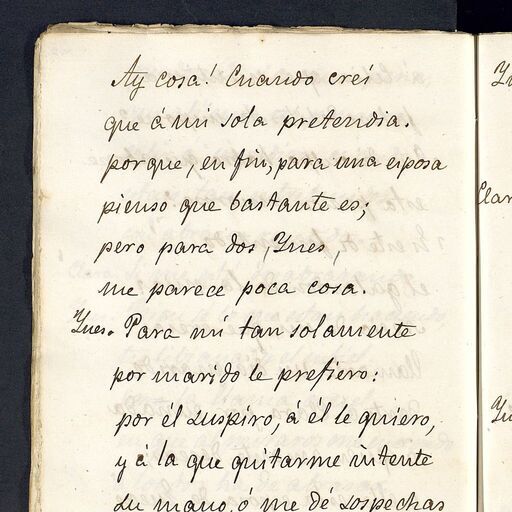 Ay cosa! Cuando creí
que á mi sola pretendia.
porque, en fin, para una esposa
pienso que bastante es;
pero para dos, Ynes,
me parece poca cosa.
Ynes. Para mi tan solamente
por marido le prefiero:
por él suspiro, á él le quiero,
y á la que quitarme intente
su mano, ó me dé sospechas